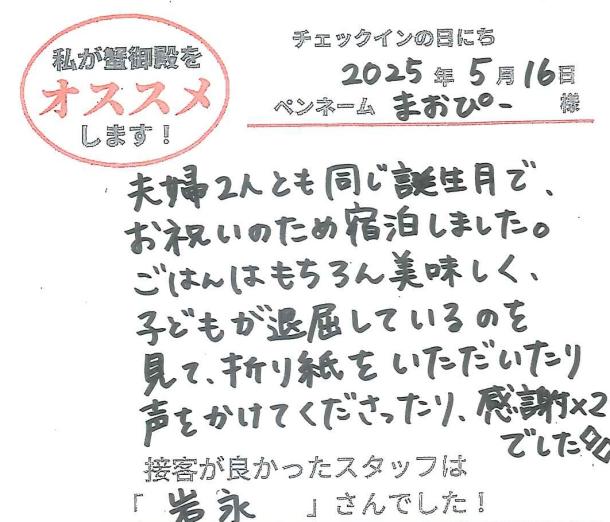 私が蟹御殿を
オススメ
します！
チェックインの日にち
2025年5月16日
ペンネーム まおぴー 様
夫婦2人とも同じ誕生月で、
お祝いのため宿泊しました。
ごはんはもちろん美味しく、
子どもが退屈しているのを
見て、折り紙をいただいたり
声をかけてくださったり、感謝×2
でした
接客が良かったスタッフは
「 岩永 」さんでした！